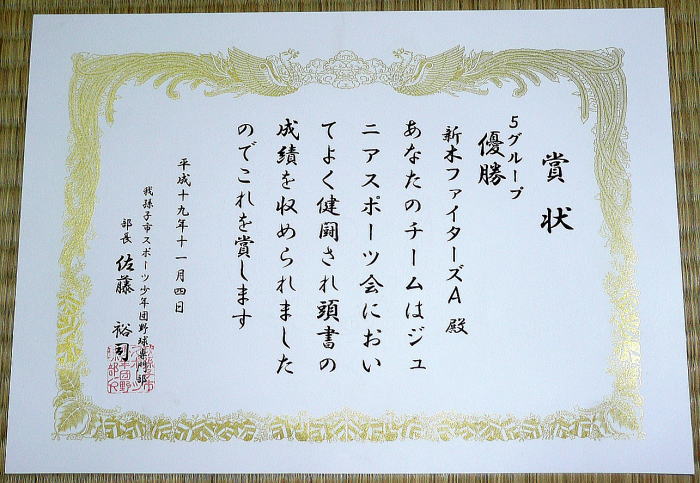 賞状
5グループ
優勝
新木ファイターズA 殿
あなたのチームはジュ
ニアスポーツ会におい
てよく健闘され頭書の
成績を収められました
のでこれを賞します
平成十九年十一月四日
我孫子市スポーツ少年団野球専門部
部長 佐藤 裕司